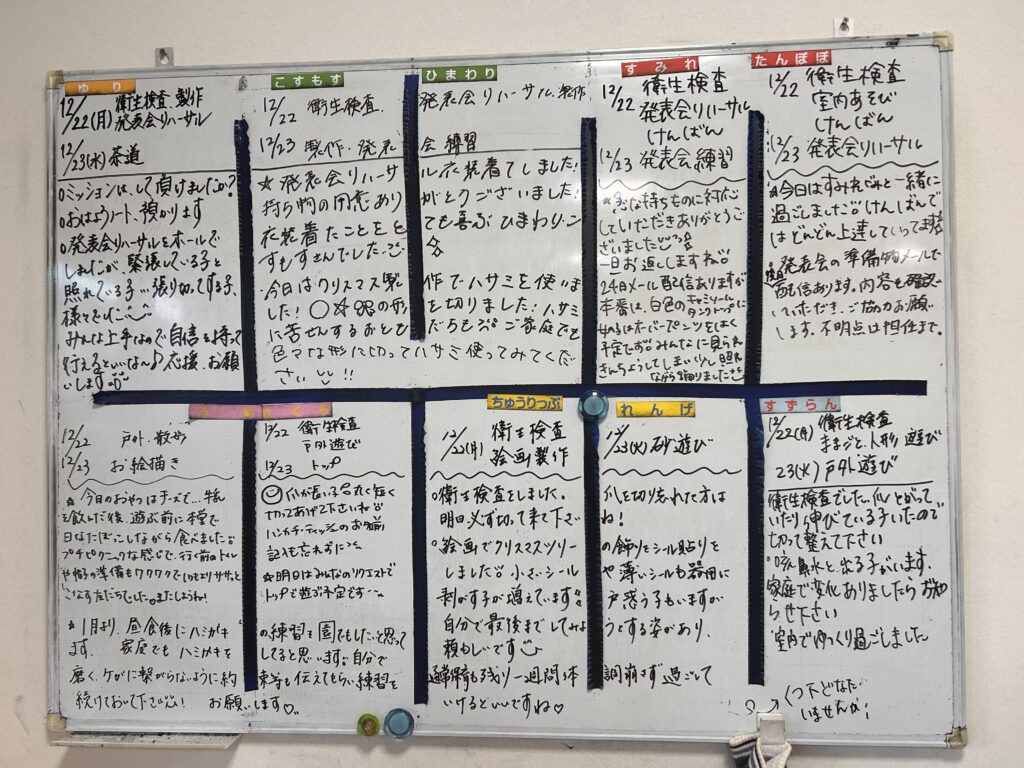 ゆり
12/22(月) 衛生検査.製作
発表会リハーサル
12/23(水) 茶道
○ミッションは、して頂けましたか?
○おはようノート、預かります
○発表会リハーサルをホールで
しましたが、緊張している子と
照れている子…張り切ってする子、
様々でした
みんな上手なので自信を持って
行えるといいな♪応援、お願
いします
こすもす
12/22 衛生検査.
12/23 製作・発表
★発表会リハーサ
持ち物の用意あり
衣装着たことをと
すもすさんでした
今日はクリスマス製
した!
に苦せんするおとも
色々な形に切ってハサミ使ってみてくだ
さい!!
ひまわり
発表会リハーサル.製作
会 練習
ル衣装着てしました!
がとうございました!
ても喜ぶひまわり
作でハサミを使いま
を切りました!ハサミ
だちも ご家庭でも
すみれ
12/22 衛生検査
発表会リハーサル
けんばん
12/23 発表会練習
していただきありがとうご
ざいました
一旦お返ししますね
24日メール配信ありますが
本番は、白色のキャミソール
タンクトップに
女の子はオーバーパンツをはく
予定です みんなに見られ
きんちょうしてしまい 照れ
ながら踊りました
たんぽぽ
12/22 衛生検査
室内あそび
けんばん
12/23 発表会リハーサル
★今日はすみれぐみと一緒に
過ごしました けんばんで
はどんどん上達していってます
発表会の準備物メールで
配信あります。内容を確認
いただき、ご協力お願
します。不明点は担任まで。
12/22 戸外・散歩
12/23 お絵描き
★今日のおやつはチーズで…牛乳
を飲んだ後、遊ぶ前に本堂で
日なたぼっこしながら食べました
プチピクニックな感じで、行く前のトイレ
や帽子の準備もワクワクでいつもよりササッと
★1月より、昼食後にハミガキ
ます。 家庭でもハミガキを
磨く、ケガに繋がらないように約
続けておいて下さい!
さくら
12/22 衛生検査
戸外遊び
12/23 トップ
爪が長い子も丸く短く
切ってあげて下さいね
ハンカチ・ティッシュのお名前
記入も忘れずに
★明日はみんなのリクエストで
トップで遊ぶ予定です
の練習を園でもしたいと思って
してると思います 自分で
束等も伝えてもらい練習を
お願いします♡
ちゅうりっぷ
12/22(月) 衛生検査
絵画製作
○衛生検査をしました。
明日必ず切って来て下さ
○絵画でクリスマスツリー
しました 小さいシール
剥がす子が増えています
自分で最後までしてみよ
頼もしいです
通常保育も残り一週間 体
いけるといいですね♡
れんげ
12/23(火) 砂遊び
爪を切り忘れた方は
ね!
の飾りをシール貼りを
や薄いシールも器用に
戸惑う子もいますが
うとする姿があり、
調崩さず過ごして
すずらん
12/22(月) 衛生検査
ままごと、人形遊び
23(火) 戸外遊び
衛生検査でした。爪とがって
いたり伸びている子いたので
切って整えて下さい
○咳 鼻水と出る子がいます。
家庭で変化ありましたらお知
らせ下さい
室内でゆっくり過ごしました
くつ下どなた
いませんか!